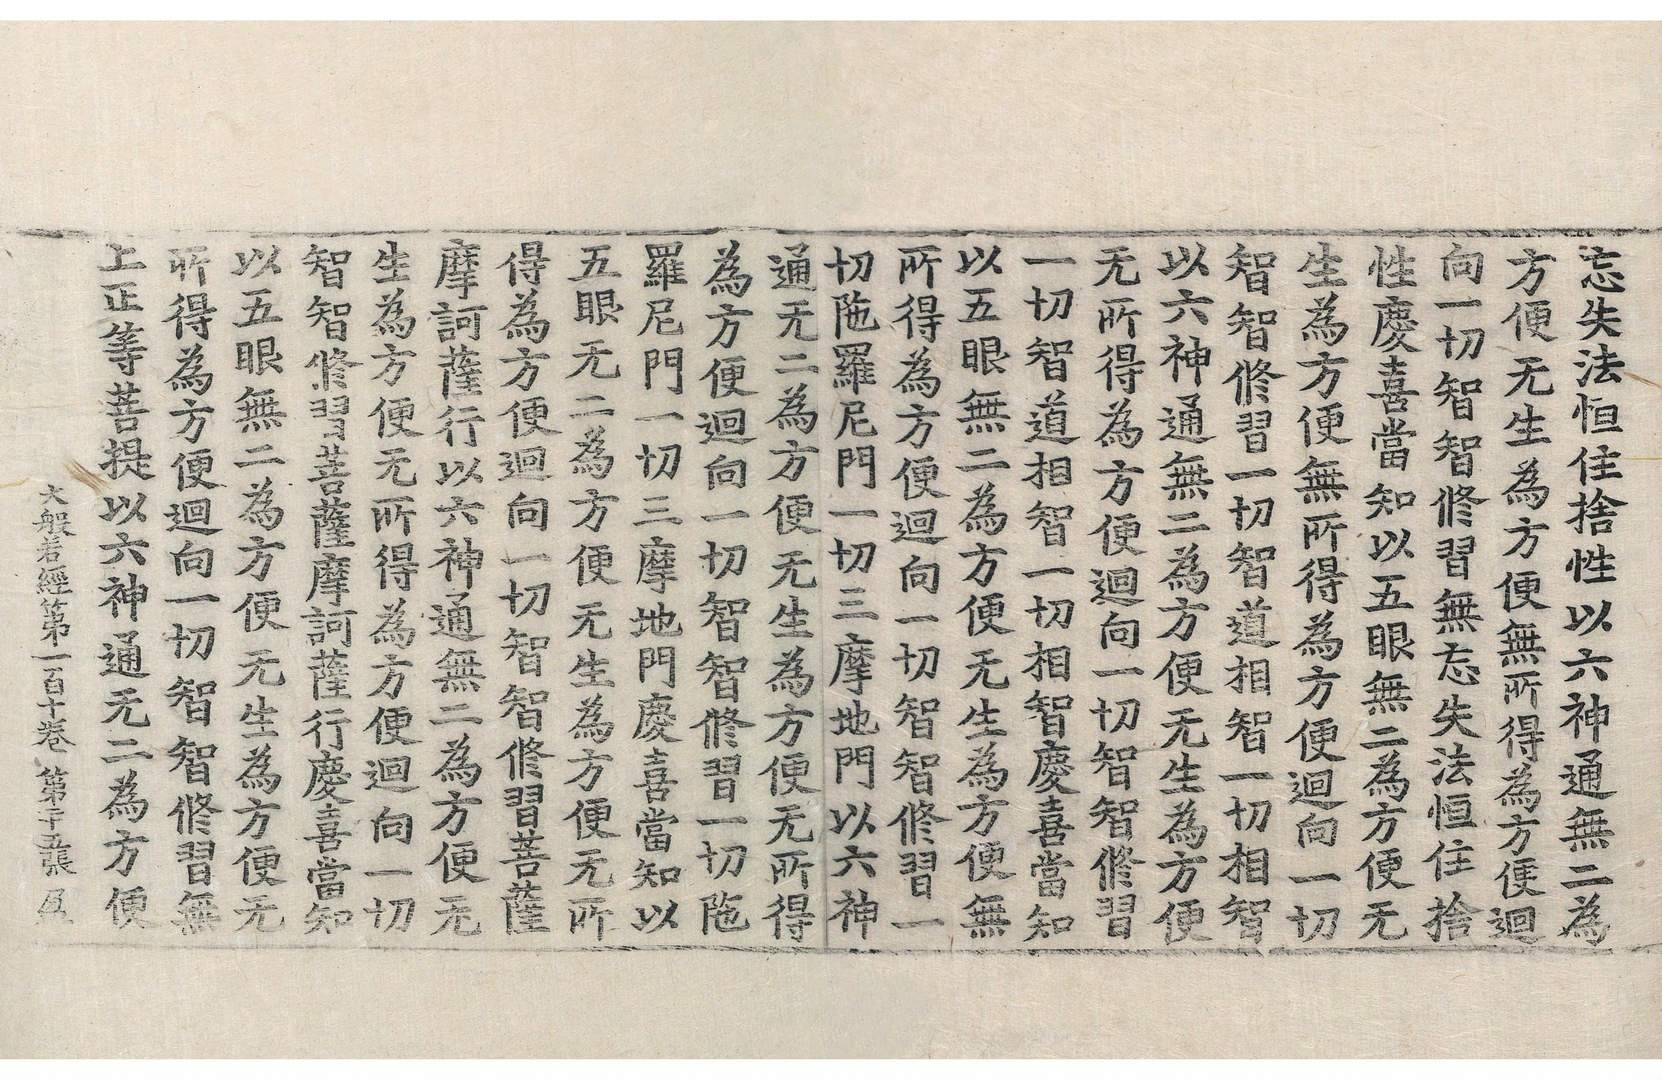 忘失法恒住捨性以六神通無二為
方便无生為方便無所得為方便迴
向一切智智修習無忘失法恒住捨
性慶喜當知以五眼無二為方便无
生為方便無所得為方便迴向一切
智智修習一切智道相智一切相智
以六神通無二為方便无生為方便
无所得為方便迴向一切智智修習
一切智道相智一切相智慶喜當知
以五眼無二為方便无生為方便無
所得為方便迴向一切智智修習一
切陁羅尼門一切三摩地門以六神
通无二為方便无生為方便无所得
為方便迴向一切智智修習一切陁
羅尼門一切三摩地門慶喜當知以
五眼无二為方便无生為方便无所
得為方便迴向一切智智修習菩薩
摩訶薩行以六神通無二為方便无
生為方便无所得為方便迴向一切
智智修習菩薩摩訶薩行慶喜當知
以五眼無二為方便无生為方便无
所得為方便迴向一切智智修習無
上正等菩提以六神通无二為方便
大般若經第一百十卷 第十五張